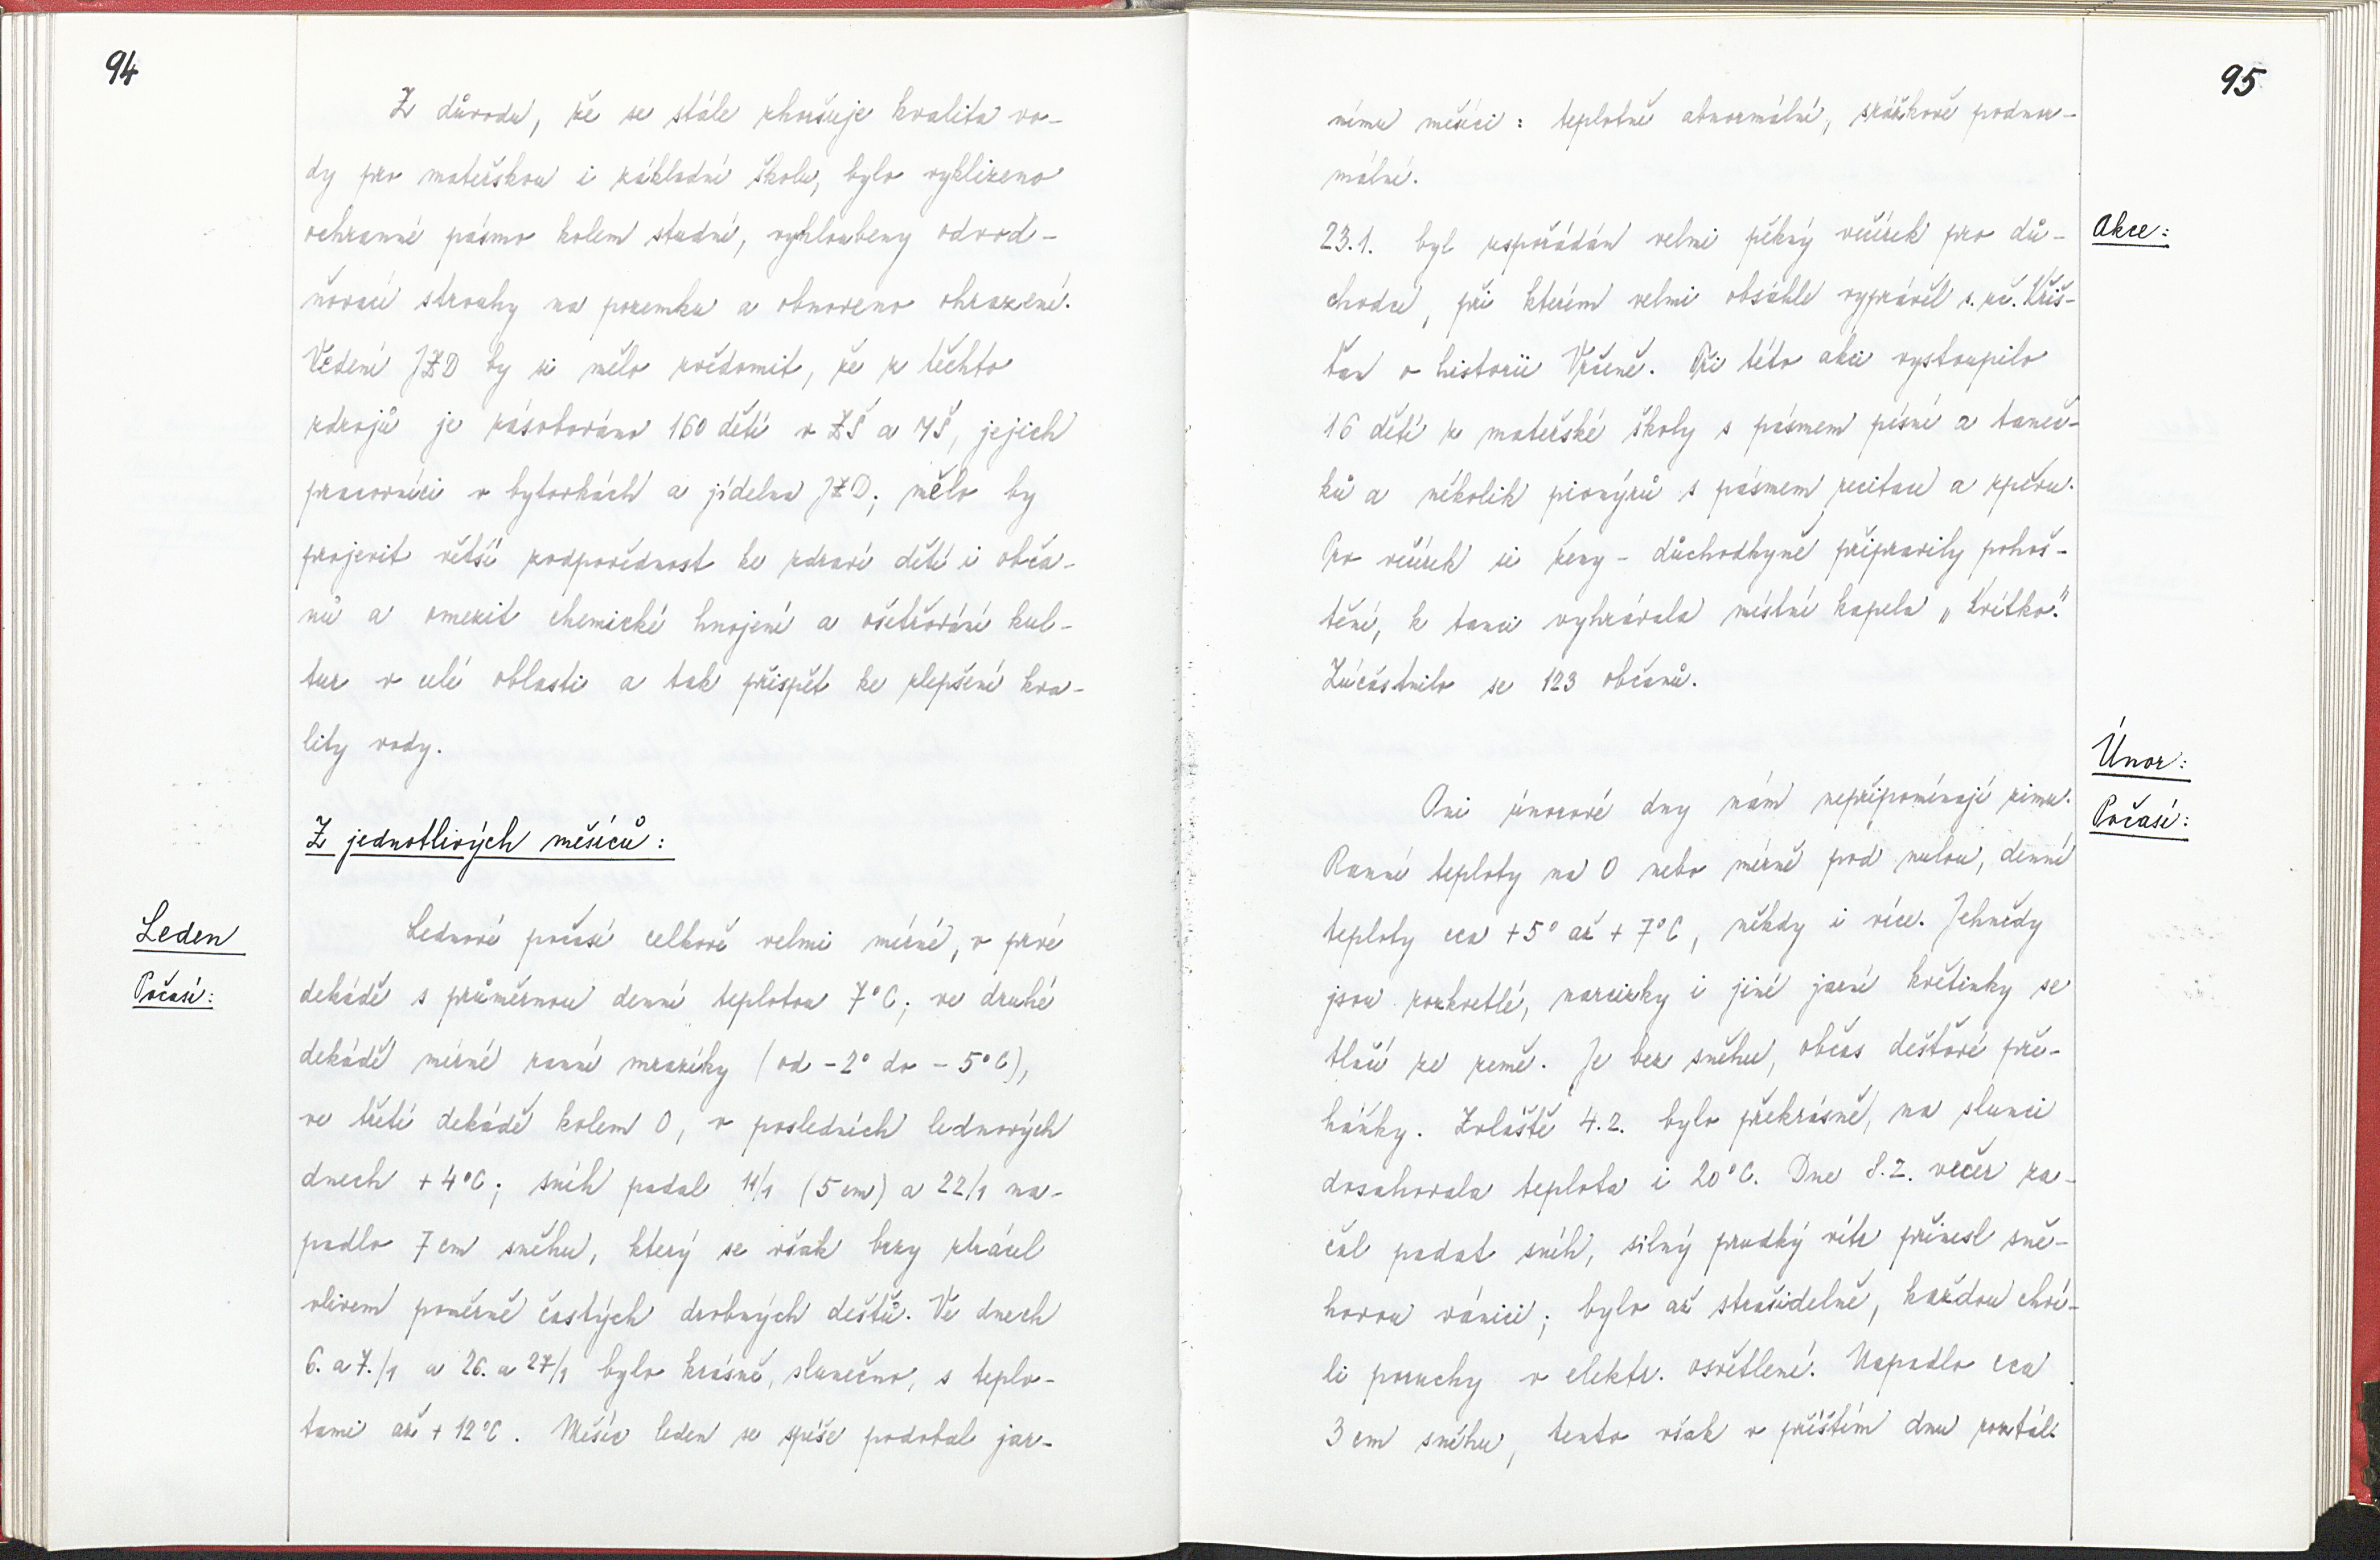 94
Z důvodu, že se stále zhoršuje kvalita vo-
dy pro mateřskou i základní školu, bylo vyklizeno
ochranné pásmo kolem studní, vyhloubeny odvod-
ňovací strouhy na pozemku a obnoveno ohrazení.
Vedení JZD by si mělo uvědomit, že z těchto
zdrojů je zásobováno 160 dětí v ZŠ a MŠ, jejich
pracovníci v bytovkách a jídelna JZD; mělo by
projevit větší zodpovědnost ke zdraví dětí i obča-
nů a omezit chemické hnojení a ošetřování kul-
tur v celé oblasti a tak přispět ke zlepšení kva-
lity vody.
Z jednotlivých měsíců:
Leden
Počasí:
Lednové počasí celkově velmi mírné, v prvé
dekádě s průměrnou denní teplotou 7°C; ve druhé
dekádě mírné ranní mrazíky (od -2° do -5°C),
ve třetí dekádě kolem 0, v posledních lednových
dnech +4°C; sníh padal 11/1 (5 cm) a 22/1 na-
padlo 7 cm sněhu, který se však brzy ztrácel
vlivem poměrně častých drobných dešťů. Ve dnech
6. a 7./1 a 26. a 27/1 bylo krásně, slunečno, s teplo-
tami až +12°C. Měsíc leden se spíše podobal jar-
95
nímu měsíci: teplotně abnormální, srážkově podnor-
mální.
Akce:
23.1. byl uspořádán velmi pěkný večírek pro dů-
chodce, při kterém velmi obsáhle vyprávěl s. uč. Křiš-
ťan o historii Vrčeně. Při této akci vystoupilo
16 dětí z mateřské školy s pásmem písní a taneč-
ků a několik pionýrů s pásmem recitace a zpěvu.
Pro večírek si ženy - důchodkyně připravily pohoš-
tění, k tanci vyhrávala místní kapela „Kvítko."
Zúčastnilo se 123 občanů.
Únor:
Počasí:
Ani únorové dny nám nepřipomínají zimu.
Ranní teploty na 0 nebo mírně pod nulou, denní
teploty cca +5° až +7°C, někdy i více. Jehnědy
jsou rozkvetlé, narcisky i jiné jarní květinky se
tlačí ze země. Je bez sněhu, občas dešťové pře-
háňky. Zvláště 4.2. bylo překrásně, na slunci
dosahovala teplota i 20°C. Dne 8.2. večer za-
čal padat sníh, silný prudký vítr přinesl sně-
hovou vánici; bylo až strašidelně, každou chví-
li poruchy v elektr. osvětlení. Napadlo cca
3 cm sněhu, tento však v příštím dnu roztál.